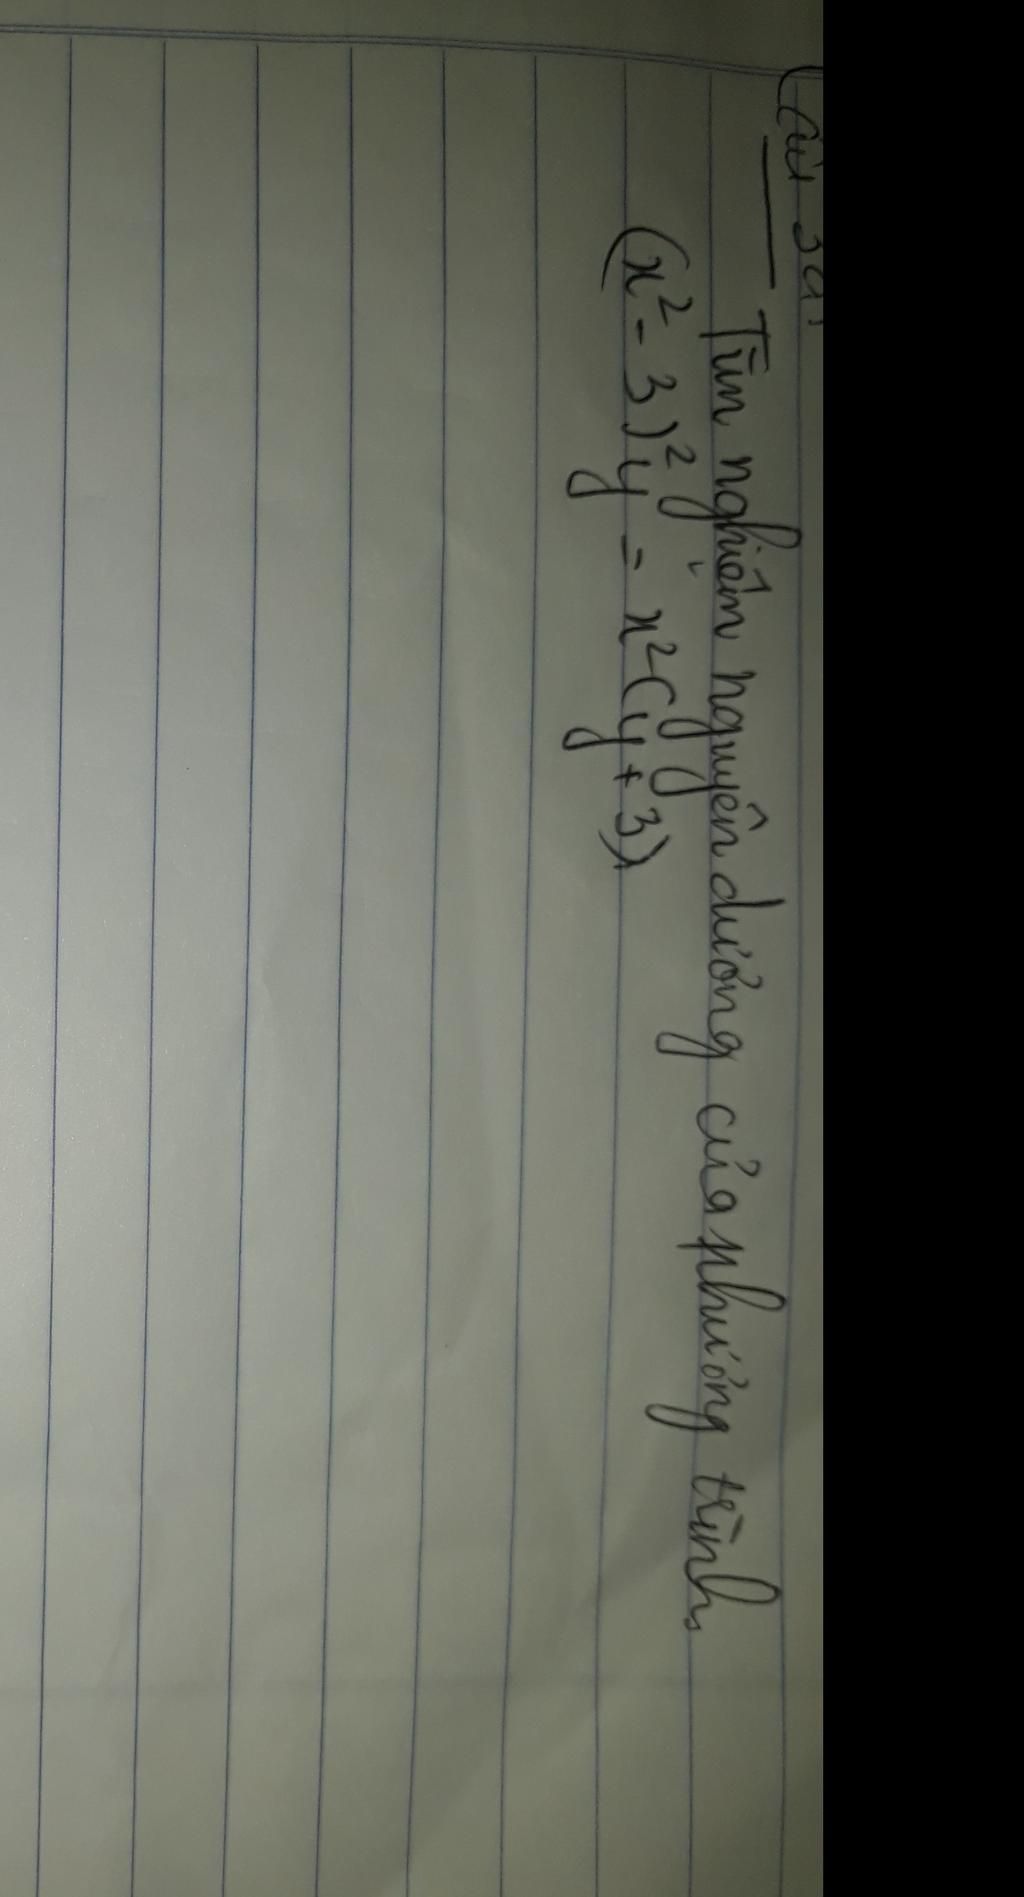 Câu 3a:
Tìm nghiệm nguyên dương của phương trình
(x² - 3)²y = x²(y + 3)